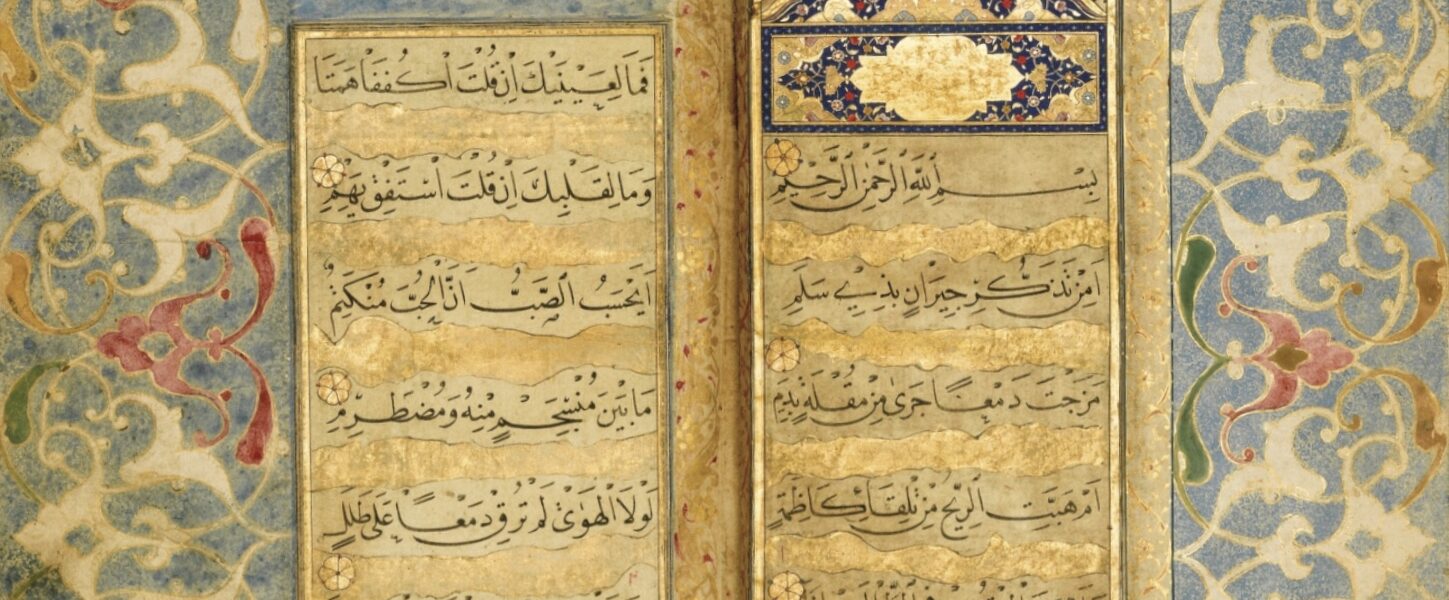 بِسْمِ اللهِ الرَّحْمٰنِ الرَّحِيمِ
اَمِنْ تَذَكُّرِ جِيرَانٍ بِذِي سَلَمِ
مَزَجْتَ دَمْعًا جَرٰى مِنْ مُقْلَةٍ بِدَمِ
اَمْ هَبَّتِ الرِّيحُ مِنْ تِلْقَاءِ كَاظِمَةٍ
فَمَا لِعَيْنَيْكَ اِنْ قُلْتَ اكْفُفَا هَمَتَا
وَمَا لِقَلْبِكَ اِنْ قُلْتَ اسْتَفِقْ يَهِمِ
اَيَحْسَبُ الصَّبُّ اَنَّ الْحُبَّ مُنْكَتِمٌ
مَا بَيْنَ مُنْسَجِمٍ مِنْهُ وَمُضْطَرِمِ
لَوْلَا الْهَوٰى لَمْ تُرِقْ دَمْعًا عَلٰى طَلَلٍ